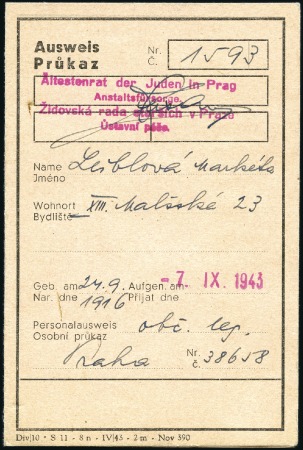 Ausweis Nr.
Průkaz Č. 1593
Ältestenrat der Juden in Prag
Anstaltsfürsorge
Židovská rada starších v Praze
Ústavní péče.
Name Leiblová Markéta
Jméno
Wohnort XIII. Malšské 23
Bydliště
Geb. am 24.9. Aufgen. am -7. IX. 1943
Nar. dne 1916 Přijat dne
Personalausweis obč. leg.
Osobní průkaz
Praha Nr. Č. 38658
Div/10 • S 11 - 8n - IV/43 - 2m - Nov 390